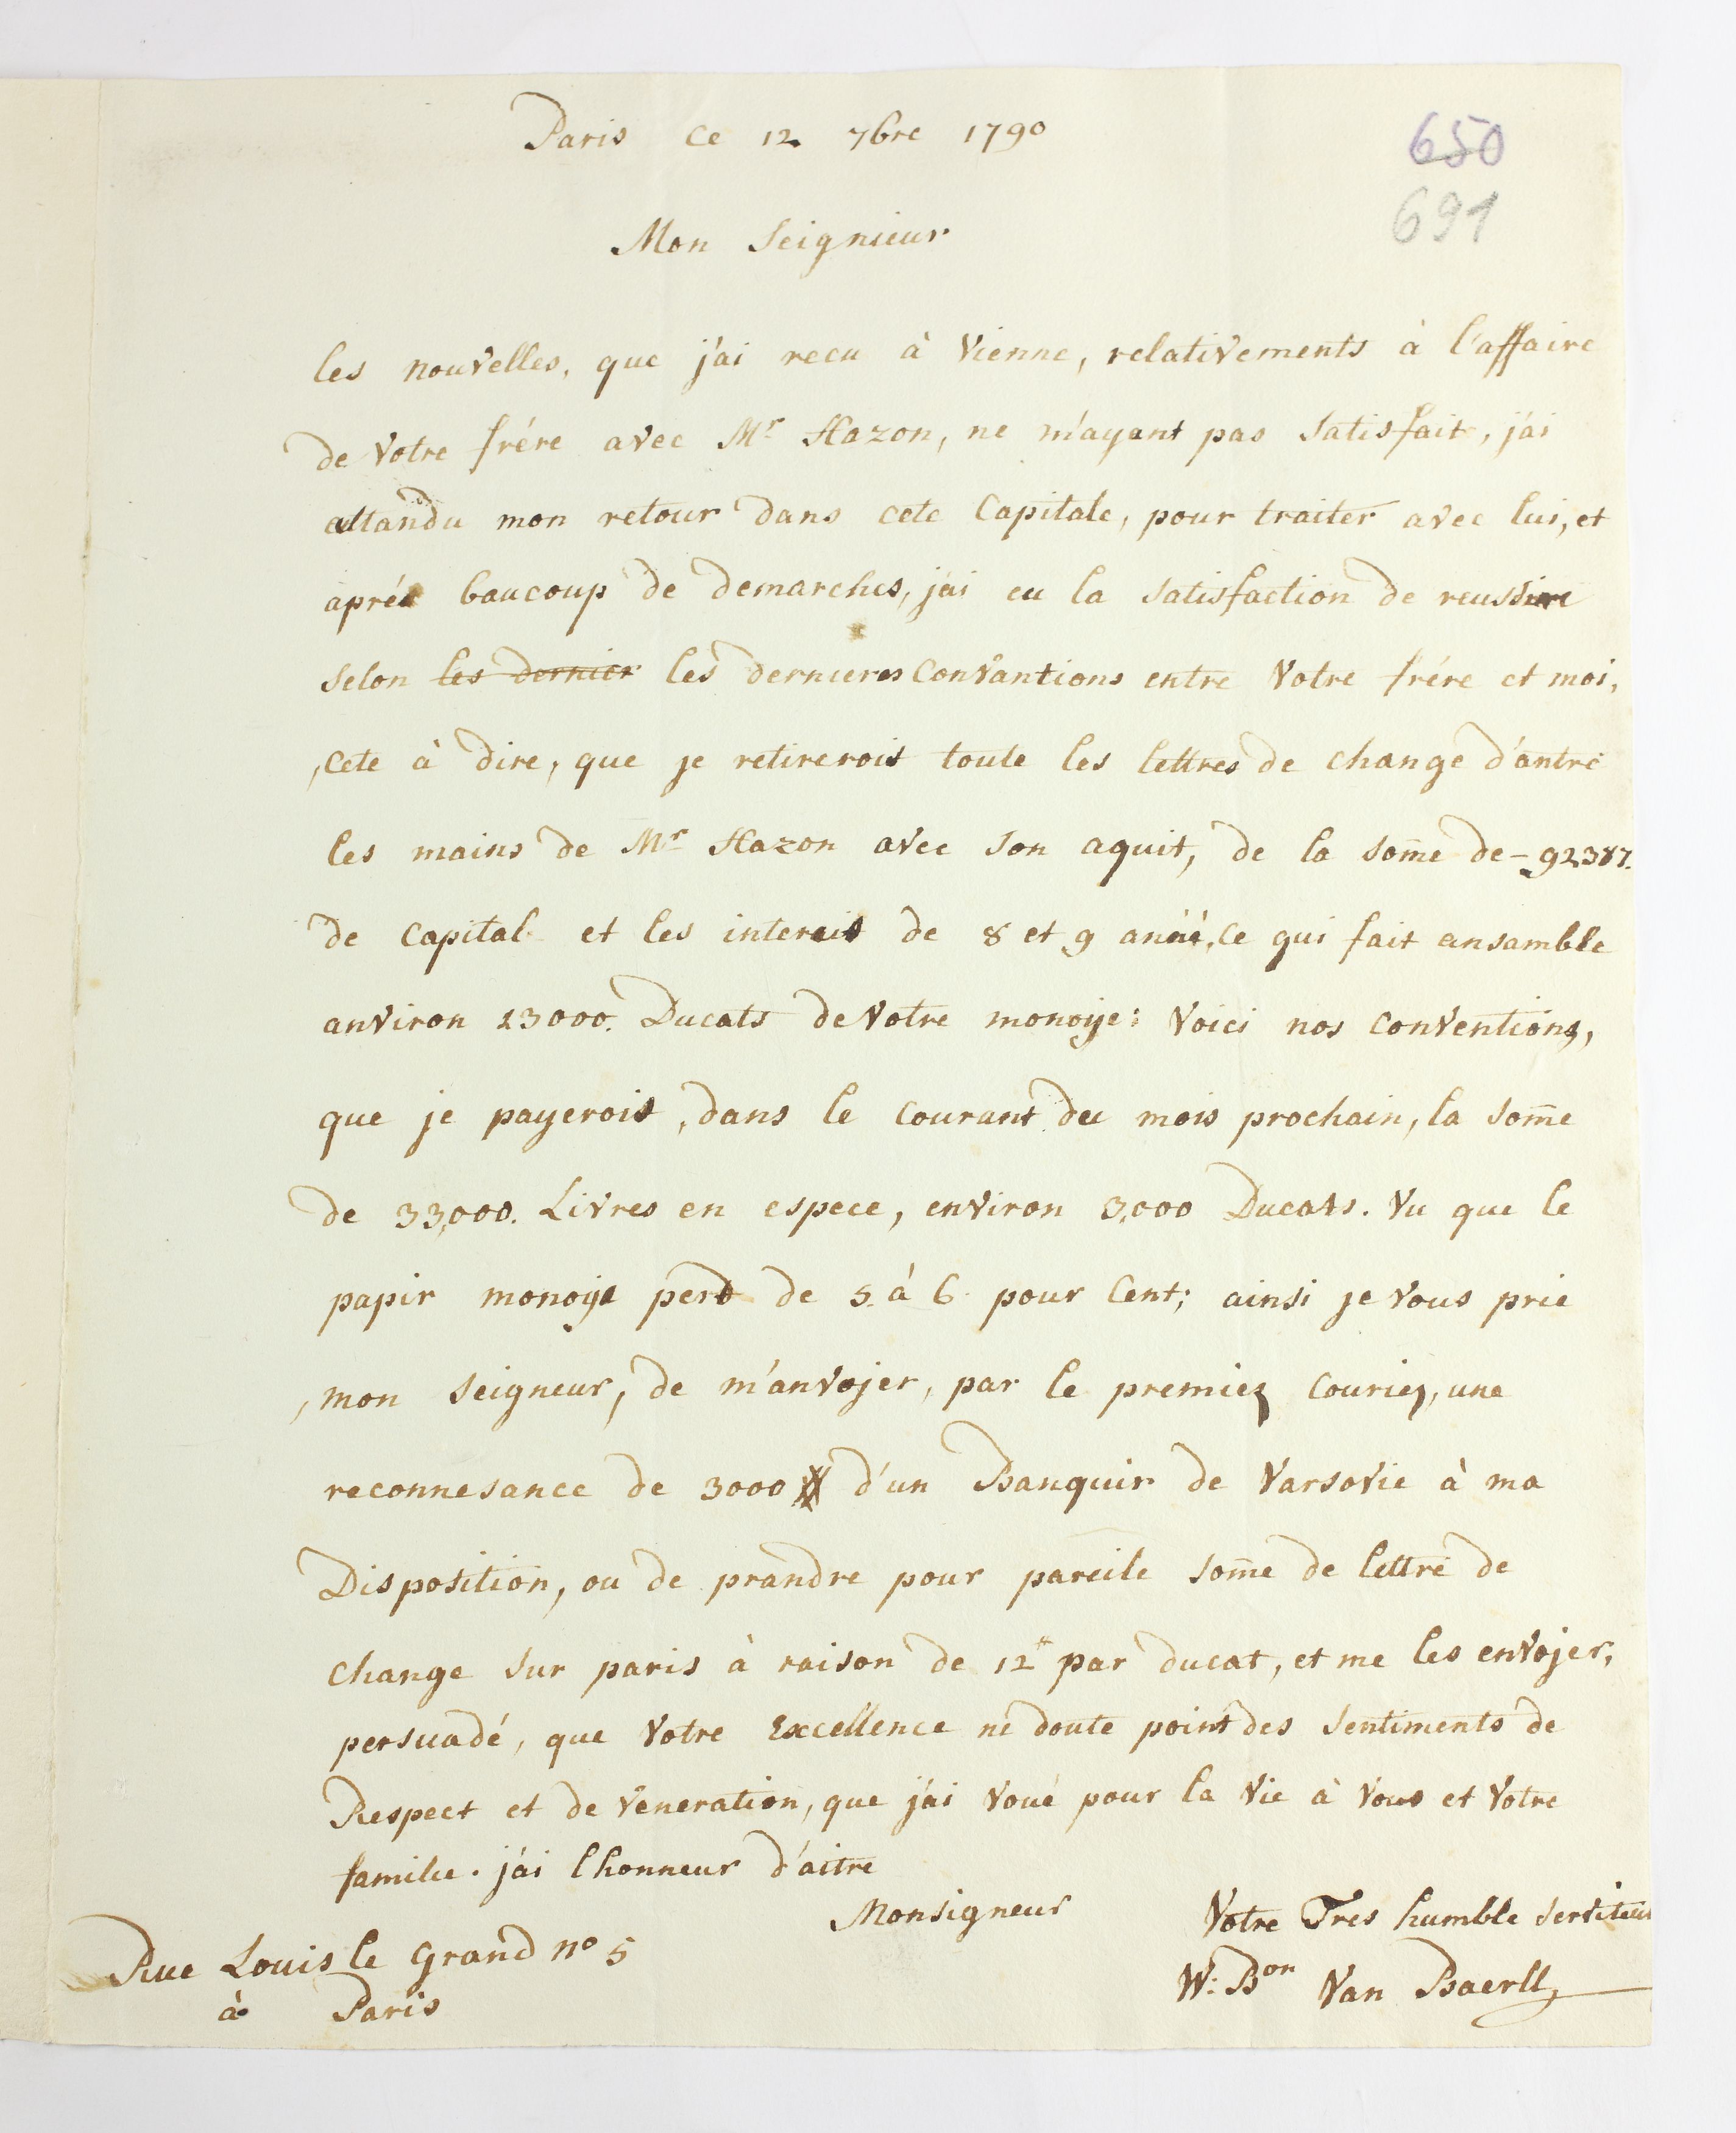 Paris Ce 12 7bre 1790
650
691
Mon Seignieur
les nouvelles, que j'ai recu à Vienne, relativements à l'affaire
de Votre frére avec Mr Hazon, ne m'ayant pas Satisfait, j'ai
attandu mon retour dans cete Capitale, pour traiter avec lui, et
aprés baucoup de demarches, j'ai eu la Satisfaction de reussire
Selon les dernier les dernieres Convantions entre Votre frére et moi,
, cete à dire, que je retirerois toute les lettres de change d'antre
les mains de Mr Hazon avec Son aquit, de la some de - 92387.
de Capital et les intereis de 8 et 9 anéé, Ce qui fait ansamble
anviron 23000. Ducats de Votre monoye: Voici nos Conventions,
que je payerois, dans le Courant du mois prochain, la Some
de 33,000. Livres en espece, environ 3,000 Ducats. Vu que le
papir monoye perd de 5. à 6 pour Cent; ainsi je Vous prie
, mon Seigneur, de m'anvojer, par le premier Courier, une
reconnesance de 3000 # d'un Banquir de Varsovie à ma
Disposition, ou de prandre pour pareile Some de lettre de
Change Sur paris à raison de 12# par ducat, et me les envojer,
persuadé, que Votre Excellence ne doute point des Sentiments de
Respect et de Veneration, que j'ai Voué pour la Vie à Vous et Votre
familie. j'ai lhonneur d'aitre
Monsigneur
Votre Tres humble Serviteur
Rue Louis le Grand no 5
à Paris
W: Bon Van Baerll